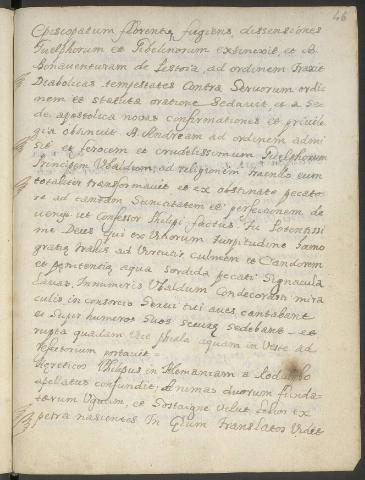 46
Episcopatum florentię fugiens, dissensiones
Guelphorum et Gibelinorum extinxit, et B.
Bonauenturam de Pistoia, ad ordinem traxit
Diabolicas tempestates contra Seruorum ordi
nem et statuta oratione Sedauit, et a Se
de apostolica nouas confirmationes et priuile
gia obtinuit. B. Andream ad ordinem admi
sit et ferocem et crudelissimum Guelphorum
Principem Vbaldum, ad religionem trahendo eum
totaliter transformauit et ex obstinato peccato
re ad tantam Sanctitatem et perfectionem de
uenit ut Confessor Philipi factus. Tu Potentissi
me Deus qui ex Vbaldum turpitudine famo
gratię tralis ad Virtutis culmen et Candorem
et penitentię aqua sordida peccati Signacula
lauas. Innumeris Vbaldum Condecorasti mira
culis, in consortio Serui tui aues cantabant
et Super humeros Suos secure sedebant et
rupta quadam Vice phiala aquam in Veste ad
Refectorium portauit.
hęreticos Philipus in Alemaniam a Rodulpho
apellatus confundit; Animas duorum funda
torum Vgonis, et Sostaigne Velut flores ex
petra nascentes In Cęlum translatos Videt